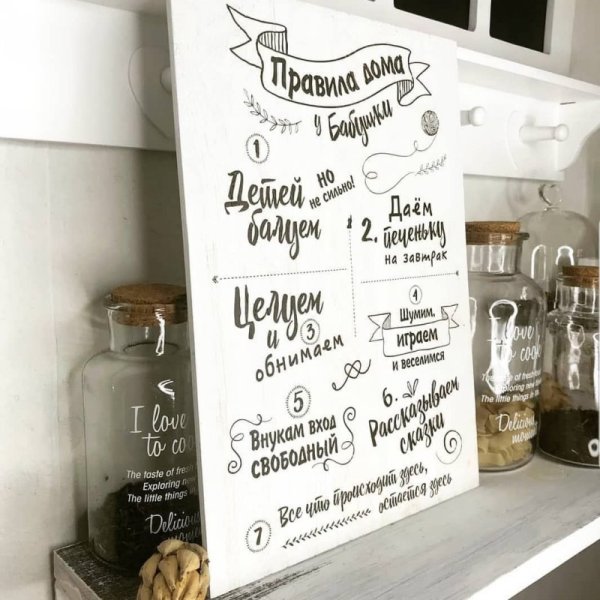 Правила дома
у Бабушки
1
Детей но
не сильно!
балуем
2. Даём
печеньку
на завтрак
Целуем
и 3
обнимаем
4
Шумим,
играем
и веселимся
5
Внукам вход
свободный
6.
Рассказываем
сказки
7 Все что происходит здесь,
остается здесь
I love
to co
The taste of fres
Exploring new
The little things in
Delicious
mome
I love
to cook
The taste of fresh
Exploring new
The little things
Delicious
moments